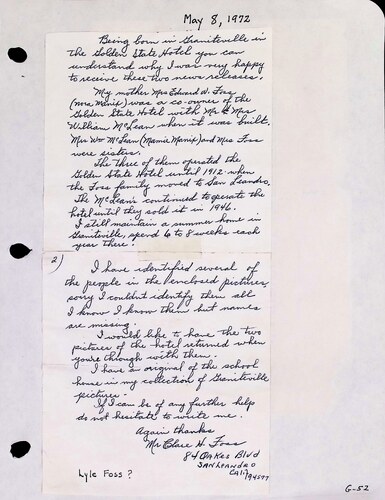 May 8, 1972
Being born in Graniteville in
the Golden State Hotel you can
understand why I was very happy
to receive these two news releases.
My mother Mrs Edward W. Foss
(nora Manix) was a co-owner of the
Golden State Hotel with Mr & Mrs
William McLean when it was built.
Mrs Wm McLean (Mamie Manix) and Mrs Foss
were sisters.
The three of them operated the
Golden State Hotel until 1912 when
the Foss family moved to San Leandro.
The McLean's continued to operate the
hotel until they sold it in 1946.
I still maintain a summer home in
Graniteville, spend 6 to 8 weeks each
year there.
2)
I have identified several of
the people in the enclosed pictures,
sorry I couldnt identify them all
I know I know them but names
are missing.
I would like to have the two
pictures of the hotel returned when
you're through with them.
I have a original of the school
house in my collection of Graniteville
pictures.
If I can be of any further help
do not hesitate to write me.
Again thanks
Mr Clare H. Foss
84 Oakes Blvd
SAN LEANDRO
Calif 94577
Lyle Foss?
G-52